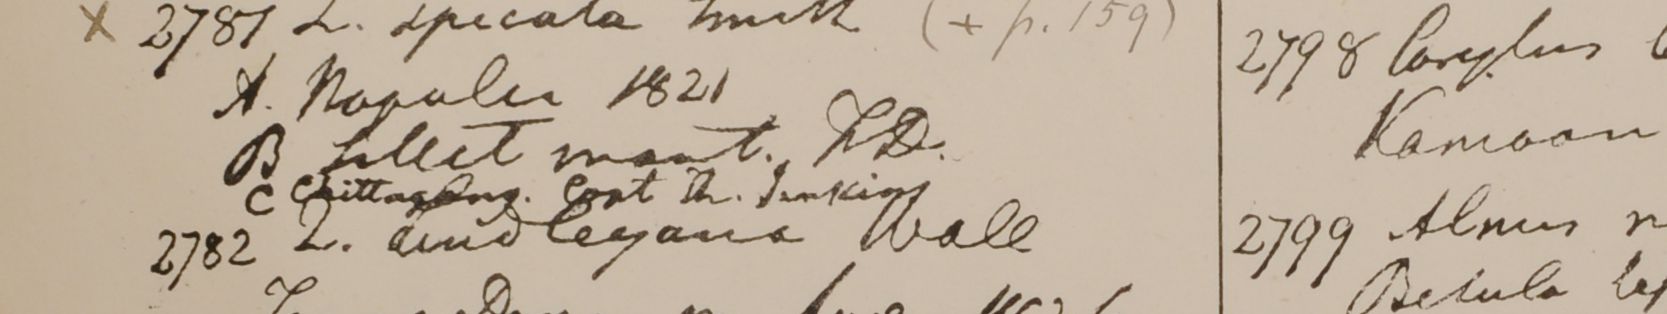 x 2781 L. spicata Smith (+ p. 159)
A. Napalia 1821
B Sillet mont. F.D.
C Chittagong. Capt Th. Jenkins
2782 L. Lindleyana Wall
1821
2798 Corylus
Kamaon
2799 Alnus n
Betula